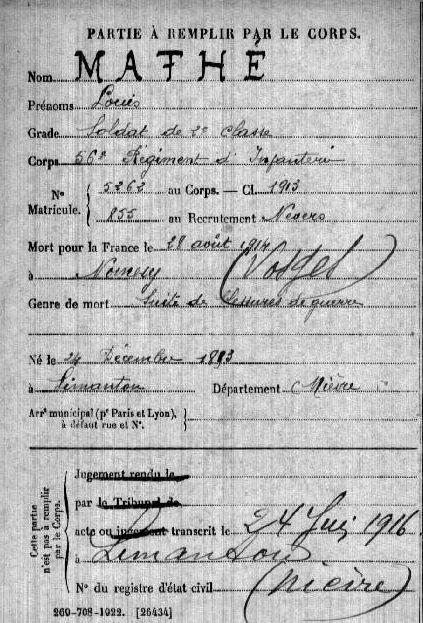 PARTIE À REMPLIR PAR LE CORPS.
Nom MATHÉ
Prénoms Louis
Grade Soldat de 2e classe
Corps 56e Régiment d'Infanterie
N° Matricule. { 5262 au Corps. — Cl. 1913
855 au Recrutement Nevers
Mort pour la France le 28 août 1914
à Nomexy (Vosges)
Genre de mort Suite de blessures de guerre
Né le 24 Décembre 1893
à Limanton Département Nièvre
Arrt municipal (pr Paris et Lyon), à défaut rue et N°. }
Cette partie n'est pas à remplir par le Corps.
Jugement rendu le
par le Tribunal de
acte ou jugement transcrit le 24 Juin 1916
à Limanton
N° du registre d'état civil (Nièvre)
260-708-1922. [26434]